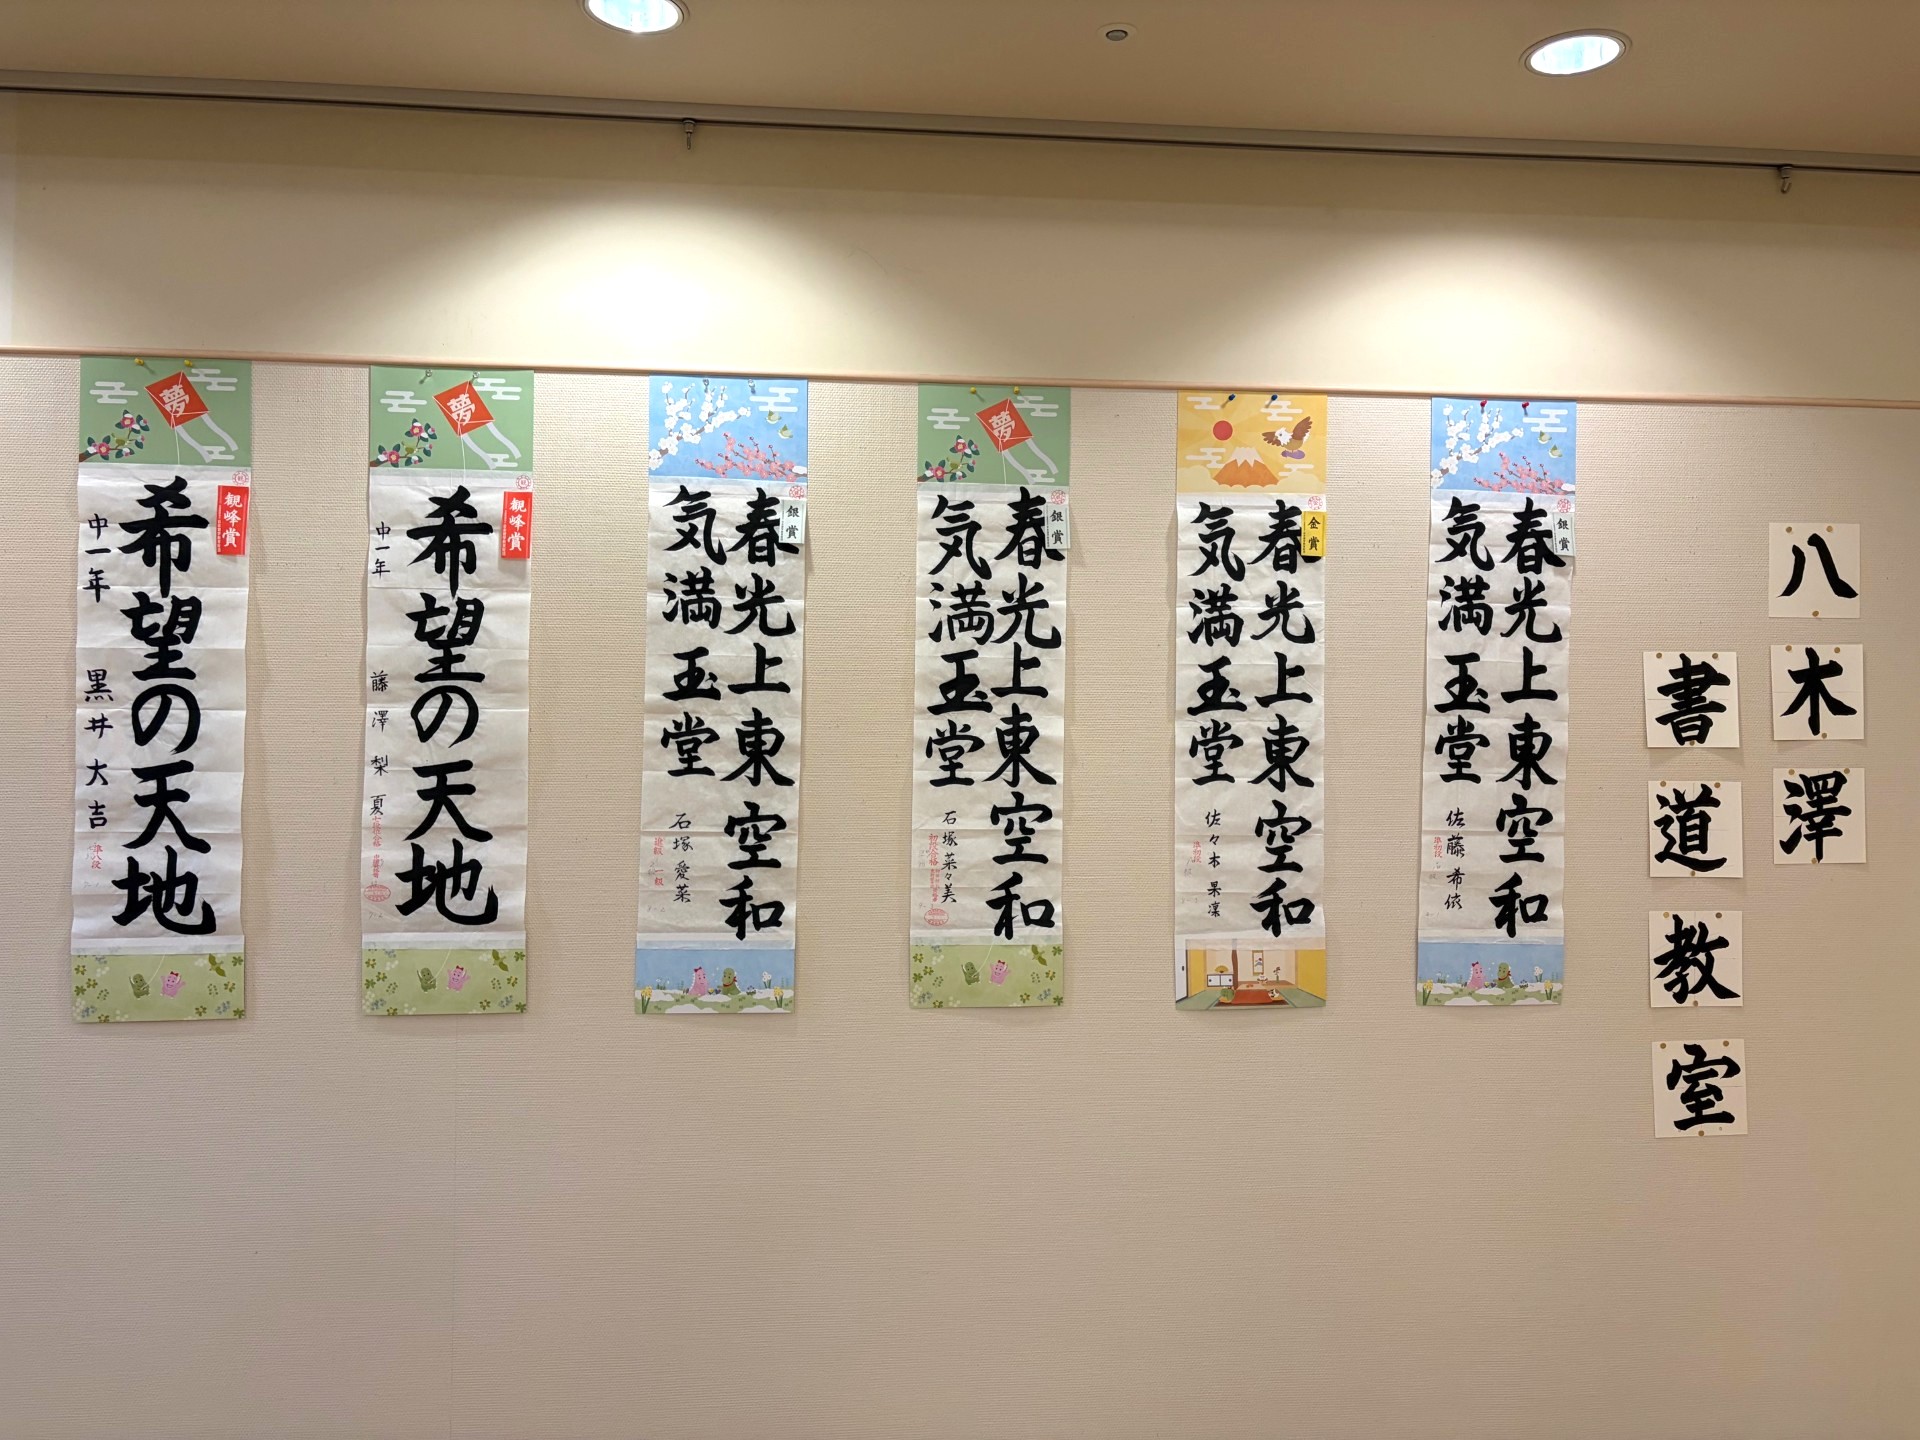 八木澤
書道教室
銀賞
春光上東空和
気満玉堂
佐藤希依
準初段
金賞
春光上東空和
気満玉堂
佐々木果凜
準初段
夢
銀賞
春光上東空和
気満玉堂
石塚菜々美
初段合格
銀賞
春光上東空和
気満玉堂
石塚愛菜
進級 一級
夢
観峰賞
希望の天地
中一年 藤澤梨夏
夢
観峰賞
希望の天地
中一年 黒井大吉
準八段